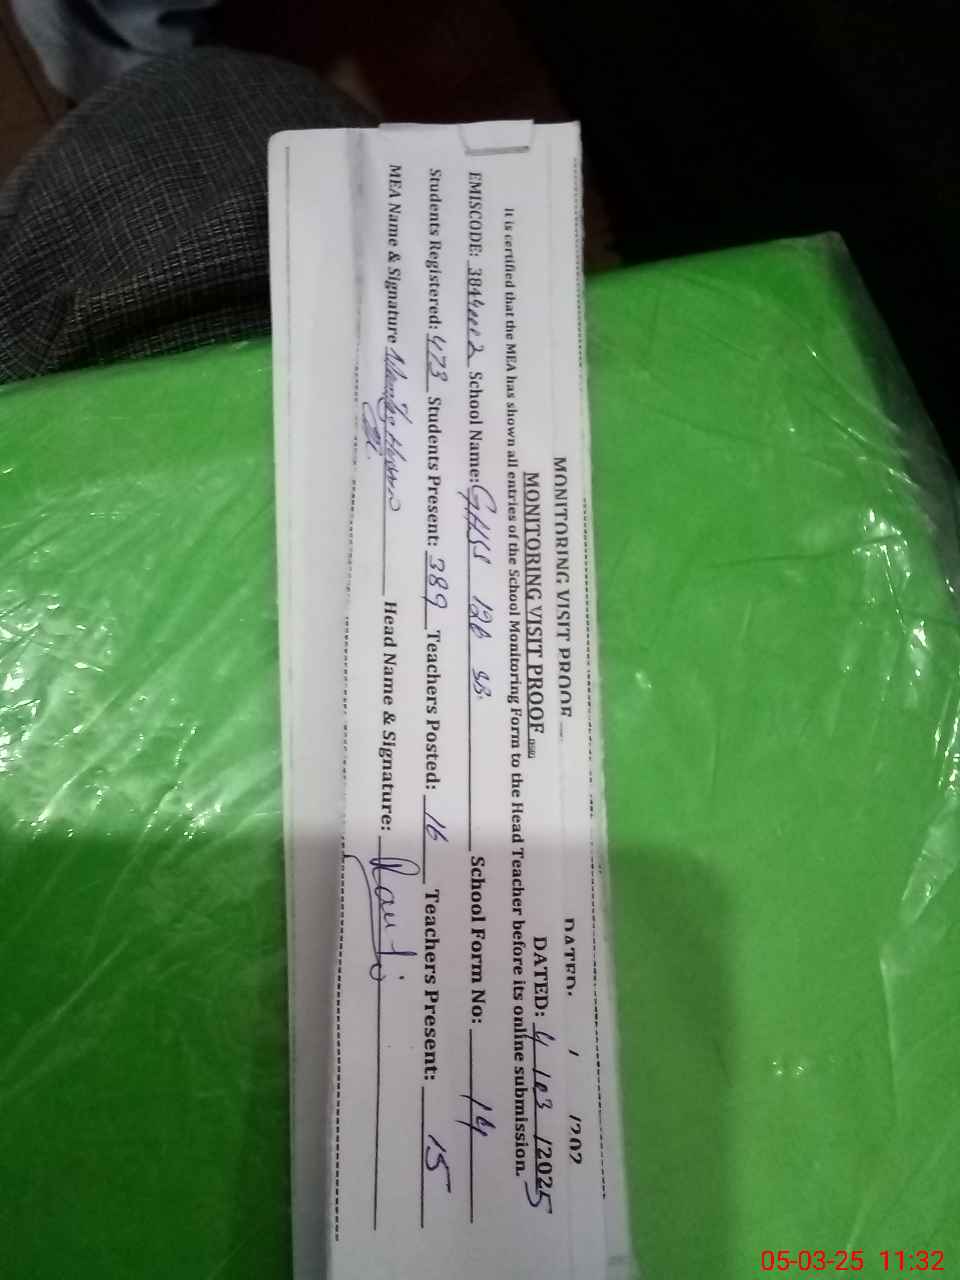 MONITORING VISIT PROOF
DATED: / /202
MONITORING VISIT PROOF DATED: 4 / 03 /2025
It is certified that the MEA has shown all entries of the School Monitoring Form to the Head Teacher before its online submission.
EMISCODE: School Name: GHSS 126 SB School Form No: 14
Students Registered: 473 Students Present: 389 Teachers Posted: 16 Teachers Present: 15
MEA Name & Signature Head Name & Signature:
05-03-25 11:32